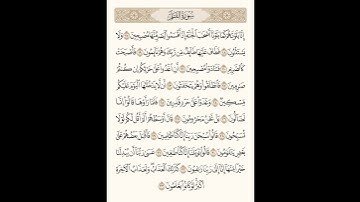 سورة القلم
إنا بلونهم كما بلونا أصحب الجنة إذ أقسموا ليصرمنها مصبحين ١٧ ولا
يستثنون ١٨ فطاف عليها طائف من ربك وهم نائمون ١٩ فأصبحت
كالصريم ٢٠ فتنادوا مصبحين ٢١ أن اغدوا على حرثكم إن كنتم
صرمين ٢٢ فانطلقوا وهم يتخفتون ٢٣ أن لا يدخلنها اليوم عليكم
مسكين ٢٤ وغدوا على حرد قدرين ٢٥ فلما رأوها قالوا إنا
لضالون ٢٦ بل نحن محرومون ٢٧ قال أوسطهم ألم أقل لكم لولا
تسبحون ٢٨ قالوا سبحن ربنا إنا كنا ظلمين ٢٩ فأقبل بعضهم على
بعض يتلومون ٣٠ قالوا يويلنا إنا كنا طغين ٣١ عسى ربنا أن يبدلنا
خيرا منها إنا إلى ربنا رغبون ٣٢ كذلك العذاب ولعذاب الآخرة
أكبر لو كانوا يعلمون ٣٣